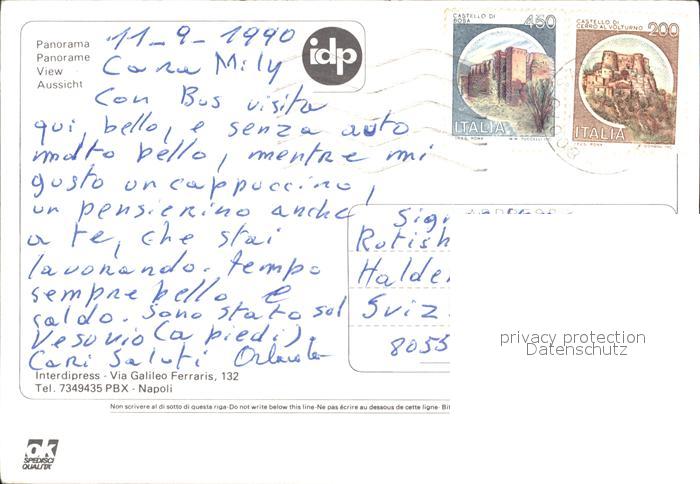 Panorama
Panorame
View
Aussicht
idp
CASTELLO DI
ROSA
450
ITALIA
CASTELLO DI
CERRO AL VOLTURNO
200
ITALIA
11-9-1990
Cara Mily
Con Bus visita
qui, bello, e senza auto
molto bello, mentre mi
gusto un cappuccino,
un pensierino anche
a te, che stai
lavorando. tempo
sempre bello e
caldo. Sono stato sul
Vesuvio (a piedi).
Cari Saluti Orlando
Sig
Rotish
Halde
Sviz.
8055
privacy protection
Datenschutz
Interdipress - Via Galileo Ferraris, 132
Tel. 7349435 PBX - Napoli
Non scrivere al di sotto di questa riga-Do not write below this line-Ne pas écrire au dessous de cette ligne- Bit
ok
SPEDISCI
QUALITA'